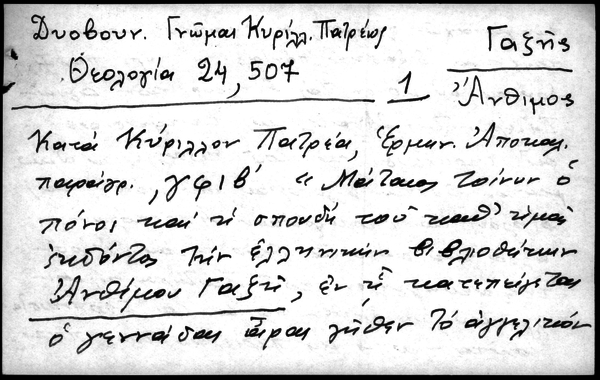 Δυοβουν. Γνῶμαι Κυρίλλ. Πατρέως
Θεολογία 24, 507
1
Γαζῆς
Ἄνθιμος
Κατὰ Κύριλλον Πατρέα, Ἑρμην. Ἀποκαλ.
παράγρ. ,γφιβ' "Μάταιος τοίνυν ὁ
πόνος καὶ ἡ σπουδὴ τοῦ καθ' ἡμᾶς
ἐκδόντος τὴν ἑλληνικὴν βιβλιοθήκην
Ἀνθίμου Γαζῆ, ἐν ᾗ κατεπείγεται
ὁ γεννάδας τὸ ἀγγελικὸν